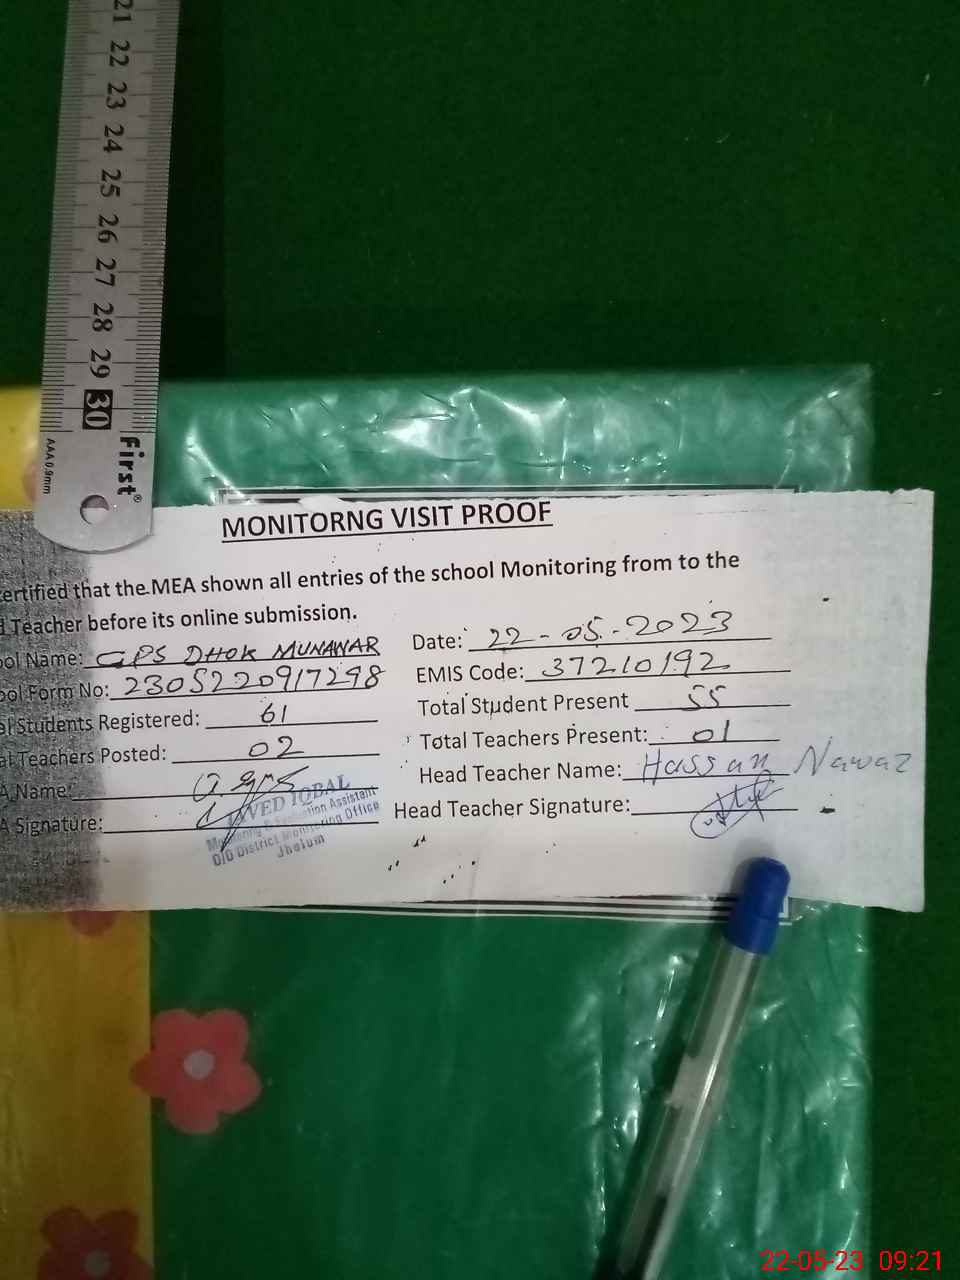 21 22 23 24 25 26 27 28 29 30
first®
AAA 0.9mm
MONITORNG VISIT PROOF
ertified that the MEA shown all entries of the school Monitoring from to the
d Teacher before its online submission.
ool Name: GPS DHOK MUNAWAR
Date: 22-05-2023
ool Form No: 2305220917298
EMIS Code: 37210192
al Students Registered: 61
Total Student Present 55
al Teachers Posted: 02
Total Teachers Present: 01
A Name:
Head Teacher Name: Hassan Nawaz
A Signature:
Head Teacher Signature:
VED IQBAL
Monitoring & Evaluation Assistant
O/O District Monitoring Office
Jhelum
22-05-23 09:21